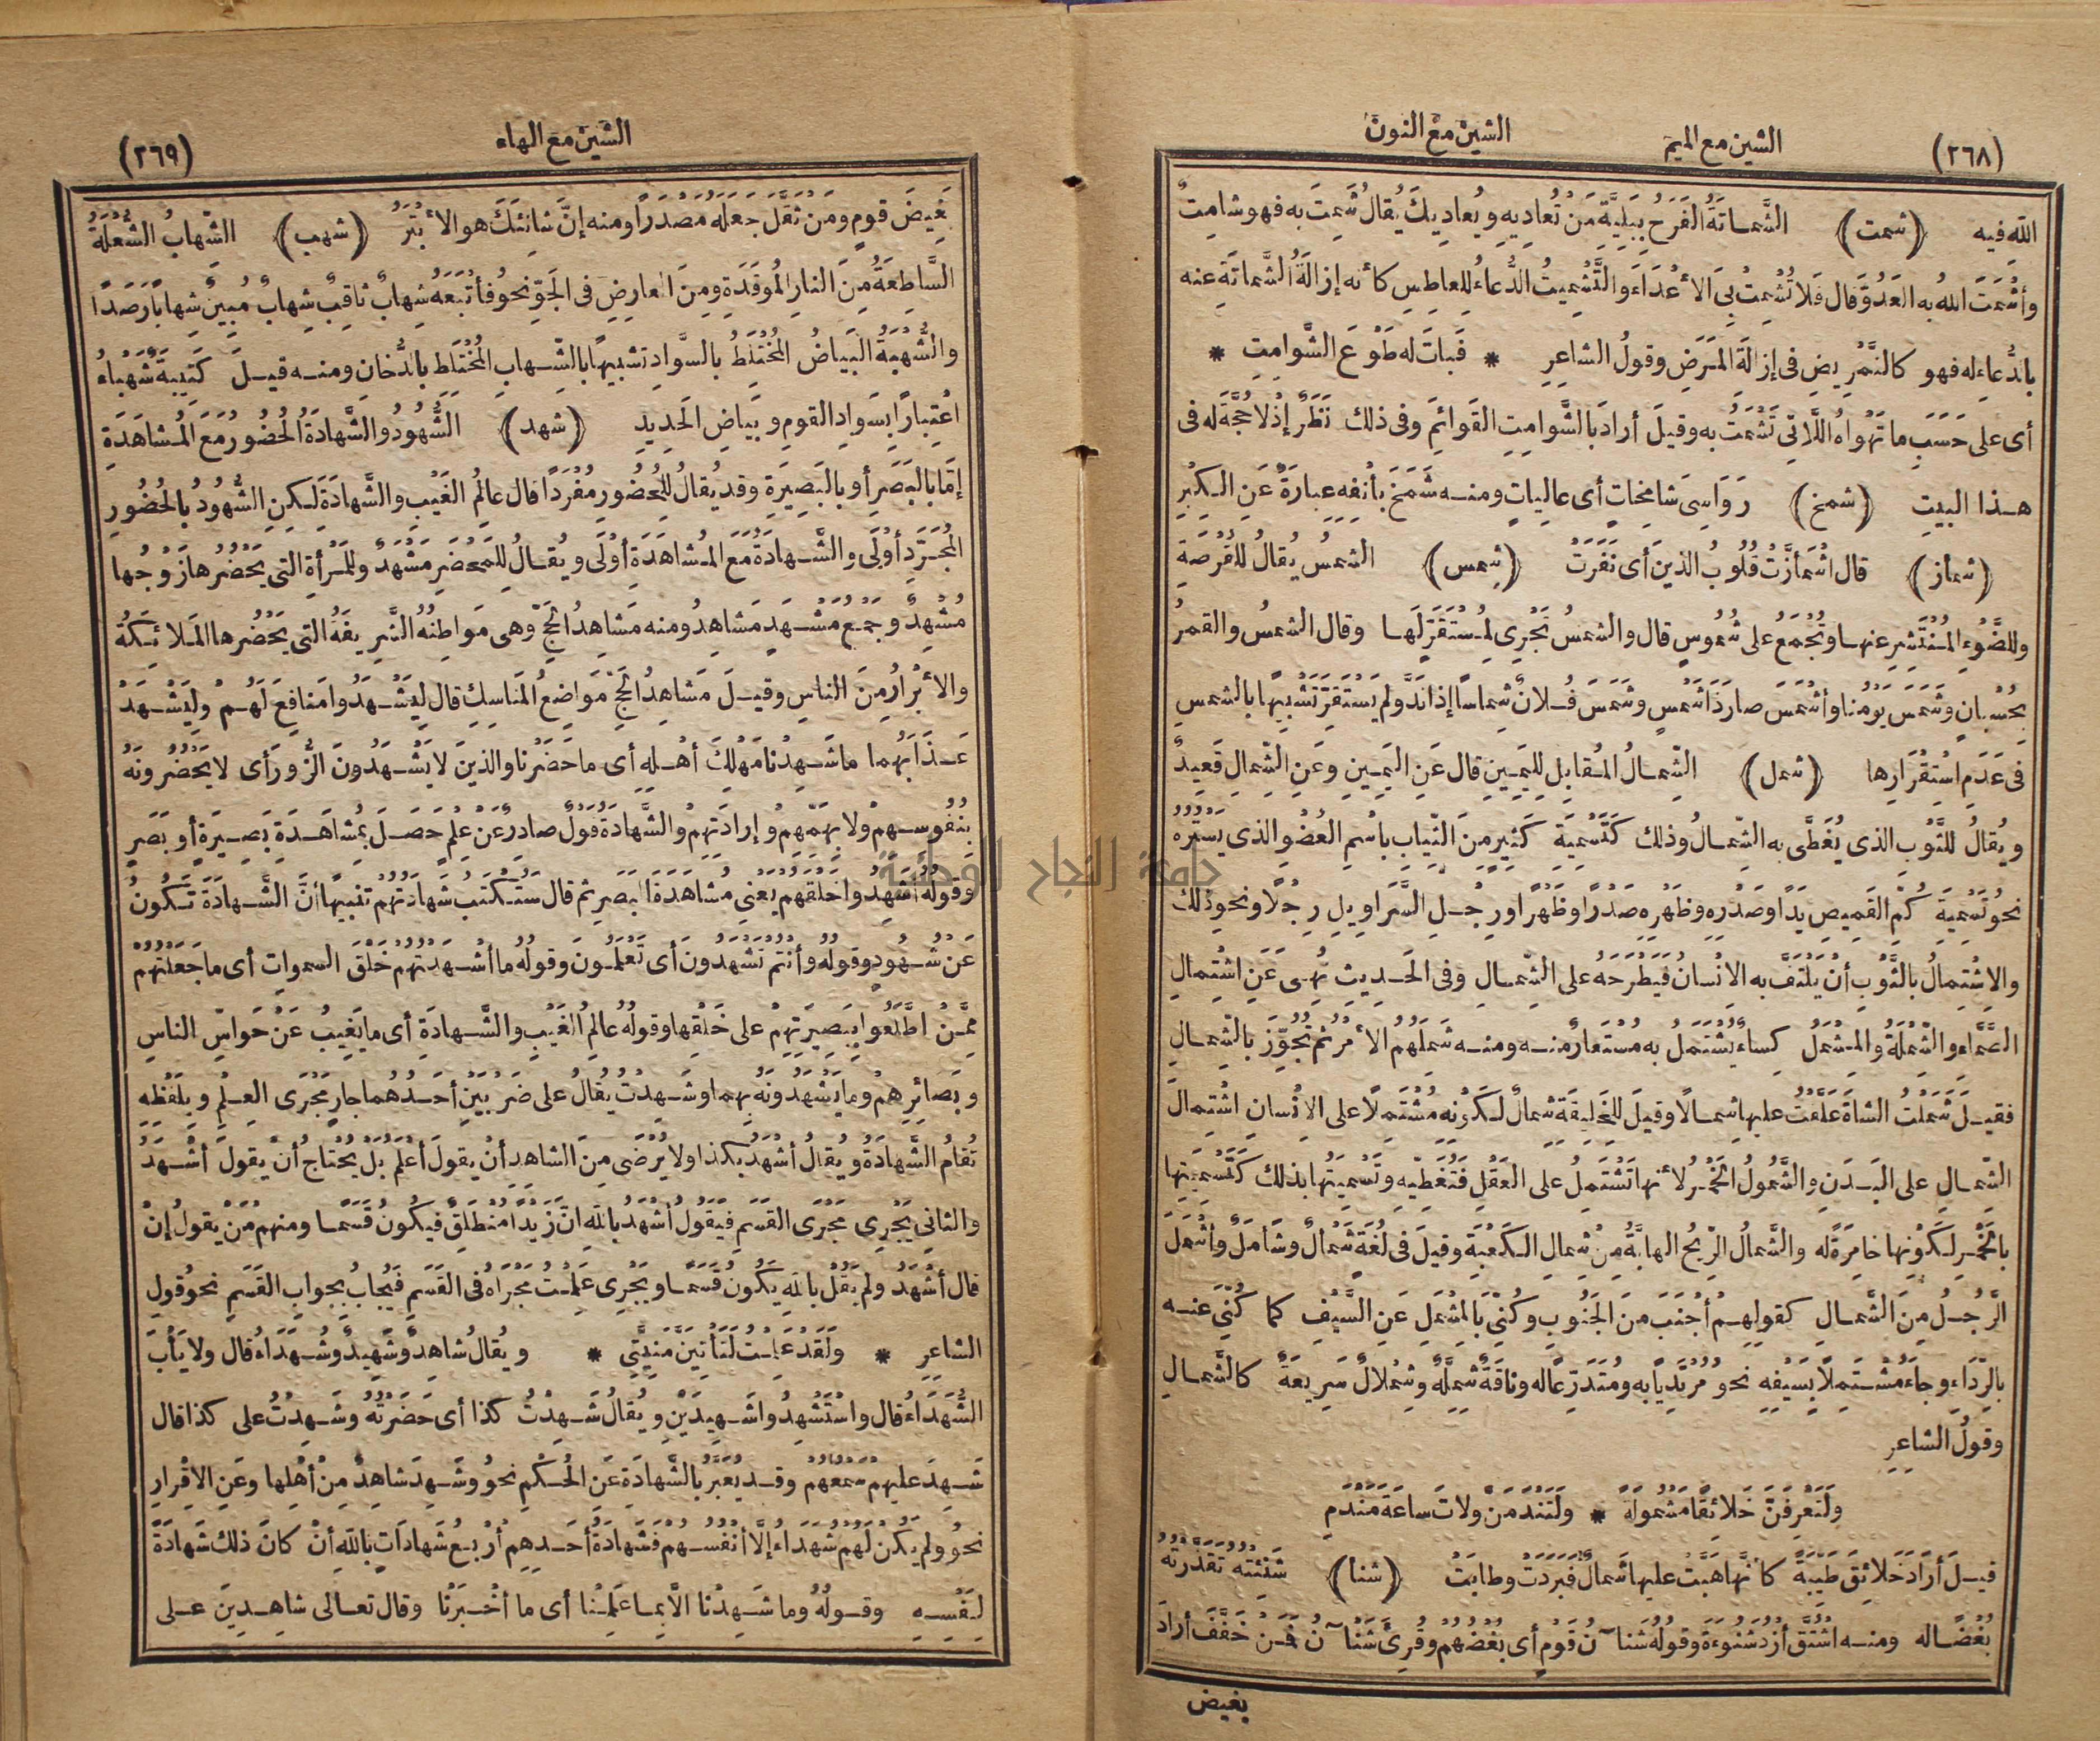 (٢٦٨) الشين مع الميم الشين مع النون
اللّه فيه (شمت) الشَّماتَةُ الفَرَحُ بِبَلِيَّةِ مَنْ تُعادِيهِ ويُعادِيكَ يُقالُ شَمِتَ به فهو شامِتٌ
وأشْمَتَ اللهُ به العَدُوَّ قال فَلا تُشْمِتْ بِىَ الأعْدَاءَ والتَّشْمِيتُ الدُّعاءُ للعاطِسِ كأنه إزالَةُ الشَّماتَةِ عنه
بالدُّعاءِ له فهو كالتَّمْرِيضِ فى إزالَةِ المَرَضِ وقولُ الشاعِرِ * فَباتَ له طَوْعَ الشَّوامِتِ *
أى على حَسَبِ ما تَهْواهُ اللَّاتِى تَشْمَتُ به وقيلَ أرادَ بالشَّوامِتِ القَوائِمَ وفى ذلك نَظَرٌ إذْ لا حُجَّةَ له فى
هذا البيتِ (شمخ) رَوَاسِىَ شامِخاتٍ أى عالِياتٍ ومنه شَمَخَ بأنْفِه عِبارَةٌ عَنِ الكِبْرِ
(شمأز) قال اشْمَأَزَّتْ قُلُوبُ الذينَ أى نَفَرَتْ (شمس) الشمسُ يُقالُ للقُرْصَةِ
وللضَّوْءِ المُنْتَشِرِ عنها وتُجْمَعُ على شُمُوسٍ قال والشمسُ تَجْرِى لِمُسْتَقَرٍّ لَها وقال الشمسُ والقمرُ
بحُسْبانٍ وشَمَسَ يَوْمُنا وأشْمَسَ صارَ ذَا شَمْسٍ وشَمَسَ فُلانٌ شِماسًا إذا نَدَّ ولم يَسْتَقِرَّ تَشْبِيهًا بالشمسِ
فى عَدَمِ اسْتِقْرَارِها (شمل) الشِّمالُ المُقابِلِ لليَمِينِ قال عَنِ اليَمِينِ وعَنِ الشِّمالِ قَعِيدٌ
ويُقالُ للثَّوْبِ الذى يُغَطَّى به الشِّمالُ وذلك كَتَسْمِيَةِ كَثِيرٍ مِنَ الثِّيابِ باسْمِ العُضْوِ الذى يَسْتُرُهُ
نحوُ تَسْمِيَةِ كُمِّ القَمِيصِ يَدًا وصَدْرِه وظَهْرِه صَدْرًا وظَهْرًا ورِجْلِ السَّرَاوِيلِ رِجْلًا ونحوِ ذلك
والاشْتِمالُ بالثَّوْبِ أنْ يَلْتَفَّ به الانْسانُ فَيَطْرَحَهُ على الشِّمالِ وفى الحَدِيثِ نُهِىَ عَنِ اشْتِمالِ
الصَّمَّاءِ والشَّمْلَةُ والمِشْمَلُ كِساءٌ يُشْتَمَلُ به مُسْتَعارٌ منه ومنه شَمِلَهُمُ الأمْرُ ثم تُجُوِّزَ بالشِّمالِ
فقيلَ شَمَلْتُ الشاةَ عَلَّقْتُ عليها شِمالًا وقيلَ للخَلِيقَةِ شِمالٌ لكَوْنِه مُشْتَمِلًا على الانْسانِ اشْتِمالَ
الشِّمالِ على البَدَنِ والشَّمُولُ الخَمْرُ لأنها تَشْتَمِلُ على العَقْلِ فَتُغَطِّيهِ وتَسْمِيَتُها بذلك كَتَسْمِيَتِها
بالخَمْرِ لكَوْنِها خامِرَةً له والشَّمالُ الرِّيحُ الهابَّةُ مِنْ شِمالِ الكَعْبَةِ وقيلَ فى لُغَةٍ شَمْأَلٌ وشَامَلٌ وأشْمَلَ
الرَّجُلُ مِنَ الشَّمالِ كقولِهِمْ أجْنَبَ مِنَ الجَنُوبِ وكُنِّىَ بالمِشْمَلِ عَنِ السَّيْفِ كما كُنِّىَ عنه
بالرِّدَاءِ وجاءَ مُشْتَمِلًا بِسَيْفِه نحوُ مُرْتَدِيًا به ومُتَدَرِّعًا له وناقَةٌ شِمِلَّةٌ وشِمْلالٌ سَرِيعَةٌ كالشَّمالِ
وقولُ الشاعِرِ
ولَتَعْرِفَنَّ خَلائِقًا مَشْمُولَةً * ولَتَنْدَمَنَّ ولاتَ ساعَةَ مَنْدَمِ
قيلَ أرَادَ خَلائِقَ طَيِّبَةً كأنَّها هَبَّتْ عليها شَمالٌ فَبَرَدَتْ وطابَتْ (شنأ) شَنِئْتُه تَقَذَّرْتُه
بُغْضًا له ومنه اشْتُقَّ أزْدُ شَنُوءَةَ وقولُه شَنَآنُ قَوْمٍ أى بُغْضُهُمْ وقُرِئَ شَنْآنُ فمَنْ خَفَّفَ أرادَ
بغيض
الشين مع الهاء (٢٦٩)
بَغِيضَ قومٍ ومَن ثَقَّلَ جَعَلَه مَصْدَرًا ومنه إنَّ شانِئَكَ هو الأبْتَرُ (شهب) الشِّهابُ الشُّعْلَةُ
السَّاطِعَةُ مِنَ النارِ المُوقَدَةِ ومِنَ العارِضِ فى الجَوِّ نحوُ فأتْبَعَهُ شِهابٌ ثاقِبٌ شِهابٌ مُبِينٌ شِهابًا رَصَدًا
والشُّهْبَةُ البَياضُ المُخْتَلِطُ بالسَّوادِ تشبيهًا بالشِّهابِ المُخْتَلِطِ بالدُّخانِ ومنه قيلَ كَتِيبَةٌ شَهْباءُ
اعْتِبارًا بسَوادِ القومِ وبَياضِ الحَدِيدِ (شهد) الشُّهُودُ والشَّهادَةُ الحُضُورُ مَعَ المُشاهَدَةِ
إمَّا بالبَصَرِ أو بالبَصِيرَةِ وقد يُقالُ للحُضُورِ مُفْرَدًا قال عالِمُ الغَيْبِ والشَّهادَةِ لكِنِ الشُّهُودُ بالحُضُورِ
المُجَرَّدِ أوْلَى والشَّهادَةُ مَعَ المُشاهَدَةِ أوْلَى ويُقالُ للمَحْضَرِ مَشْهَدٌ وللمَرْأةِ التى يَحْضُرُها زَوْجُها
مُشْهِدٌ وجَمْعُ مَشْهَدٍ مَشاهِدُ ومنه مَشاهِدُ الحَجِّ وهى مَواطِنُهُ الشَّرِيفَةُ التى يَحْضُرُها المَلائِكَةُ
والأبْرارُ مِنَ الناسِ وقيلَ مَشاهِدُ الحَجِّ مَواضِعُ المَناسِكِ قال لِيَشْهَدُوا مَنافِعَ لَهُمْ ولْيَشْهَدْ
عَذَابَهُما ما شَهِدْنا مَهْلِكَ أهْلِه أى ما حَضَرْنا والذينَ لا يَشْهَدُونَ الزُّورَ أى لا يَحْضُرُونَهُ
بنُفُوسِهِمْ ولا بهَمِّهِمْ وإرادَتِهِمْ والشَّهادَةُ قَوْلٌ صادِرٌ عَنْ عِلْمٍ حَصَلَ بمُشاهَدَةِ بَصِيرَةٍ أو بَصَرٍ
وقولُه أشَهِدُوا خَلْقَهُمْ يَعْنِى مُشاهَدَةَ البَصَرِ ثم قال سَتُكْتَبُ شَهادَتُهُمْ تنبيهًا أنَّ الشَّهادَةَ تَكُونُ
عَنْ شُهُودٍ وقولُه وأنْتُمْ تَشْهَدُونَ أى تَعْلَمُونَ وقولُه ما أشْهَدْتُهُمْ خَلْقَ السمواتِ أى ما جَعَلْتُهُمْ
مِمَّنْ اطَّلَعُوا بِبَصِيرَتِهِمْ على خَلْقِها وقولُه عالِمُ الغَيْبِ والشَّهادَةِ أى ما يَغِيبُ عَنْ حَواسِّ الناسِ
وبَصائِرِهِمْ وما يَشْهَدُونَهُ بهما وشَهِدْتُ يُقالُ على ضَرْبَيْنِ أحَدُهُما جارٍ مَجْرَى العِلْمِ وبِلَفْظِه
تُقامُ الشَّهادَةُ ويُقالُ أشْهَدُ بكذا ولا يُرْضَى مِنَ الشاهِدِ أنْ يقولَ أعْلَمُ بَلْ يُحْتاجُ أنْ يقولَ أشْهَدُ
والثانى يَجْرِى مَجْرَى القَسَمِ فيَقُولُ أشْهَدُ باللهِ انَّ زَيْدًا مُنْطَلِقٌ فيكُونُ قَسَمًا ومنهم مَنْ يقولُ إنْ
قال أشْهَدُ ولم يَقُلْ باللهِ يَكُونُ قَسَمًا ويَجْرِى عَلِمْتُ مَجْرَاهُ فى القَسَمِ فَيُجابُ بجوابِ القَسَمِ نحوُ قولِ
الشاعِرِ * ولَقَدْ عَلِمْتُ لَتَأْتِيَنَّ مَنِيَّتِى * ويُقالُ شاهِدٌ وشَهِيدٌ وشُهَدَاءُ قال ولا يَأْبَ
الشُّهَدَاءُ قال واسْتَشْهِدُوا شَهِيدَيْنِ ويُقالُ شَهِدْتُ كذا أى حَضَرْتُهُ وشَهِدْتُ على كذا قال
شَهِدَ عليهم سَمْعُهُمْ وقد يُعَبَّرُ بالشَّهادَةِ عَنِ الحُكْمِ نحوُ وشَهِدَ شاهِدٌ مِنْ أهْلِها وعَنِ الاقْرارِ
نحوُ ولم يَكُنْ لَهُمْ شُهَدَاءُ إلَّا أنْفُسُهُمْ فَشَهادَةُ أحَدِهِمْ أرْبَعُ شَهاداتٍ باللهِ أنْ كانَ ذلك شَهادَةً
لِنَفْسِه وقولُهُ وما شَهِدْنا الَّا بما عَلِمْنا أى ما أخْبَرْنا وقال تعالى شاهِدِينَ على
جامعة النجاح الوطنية